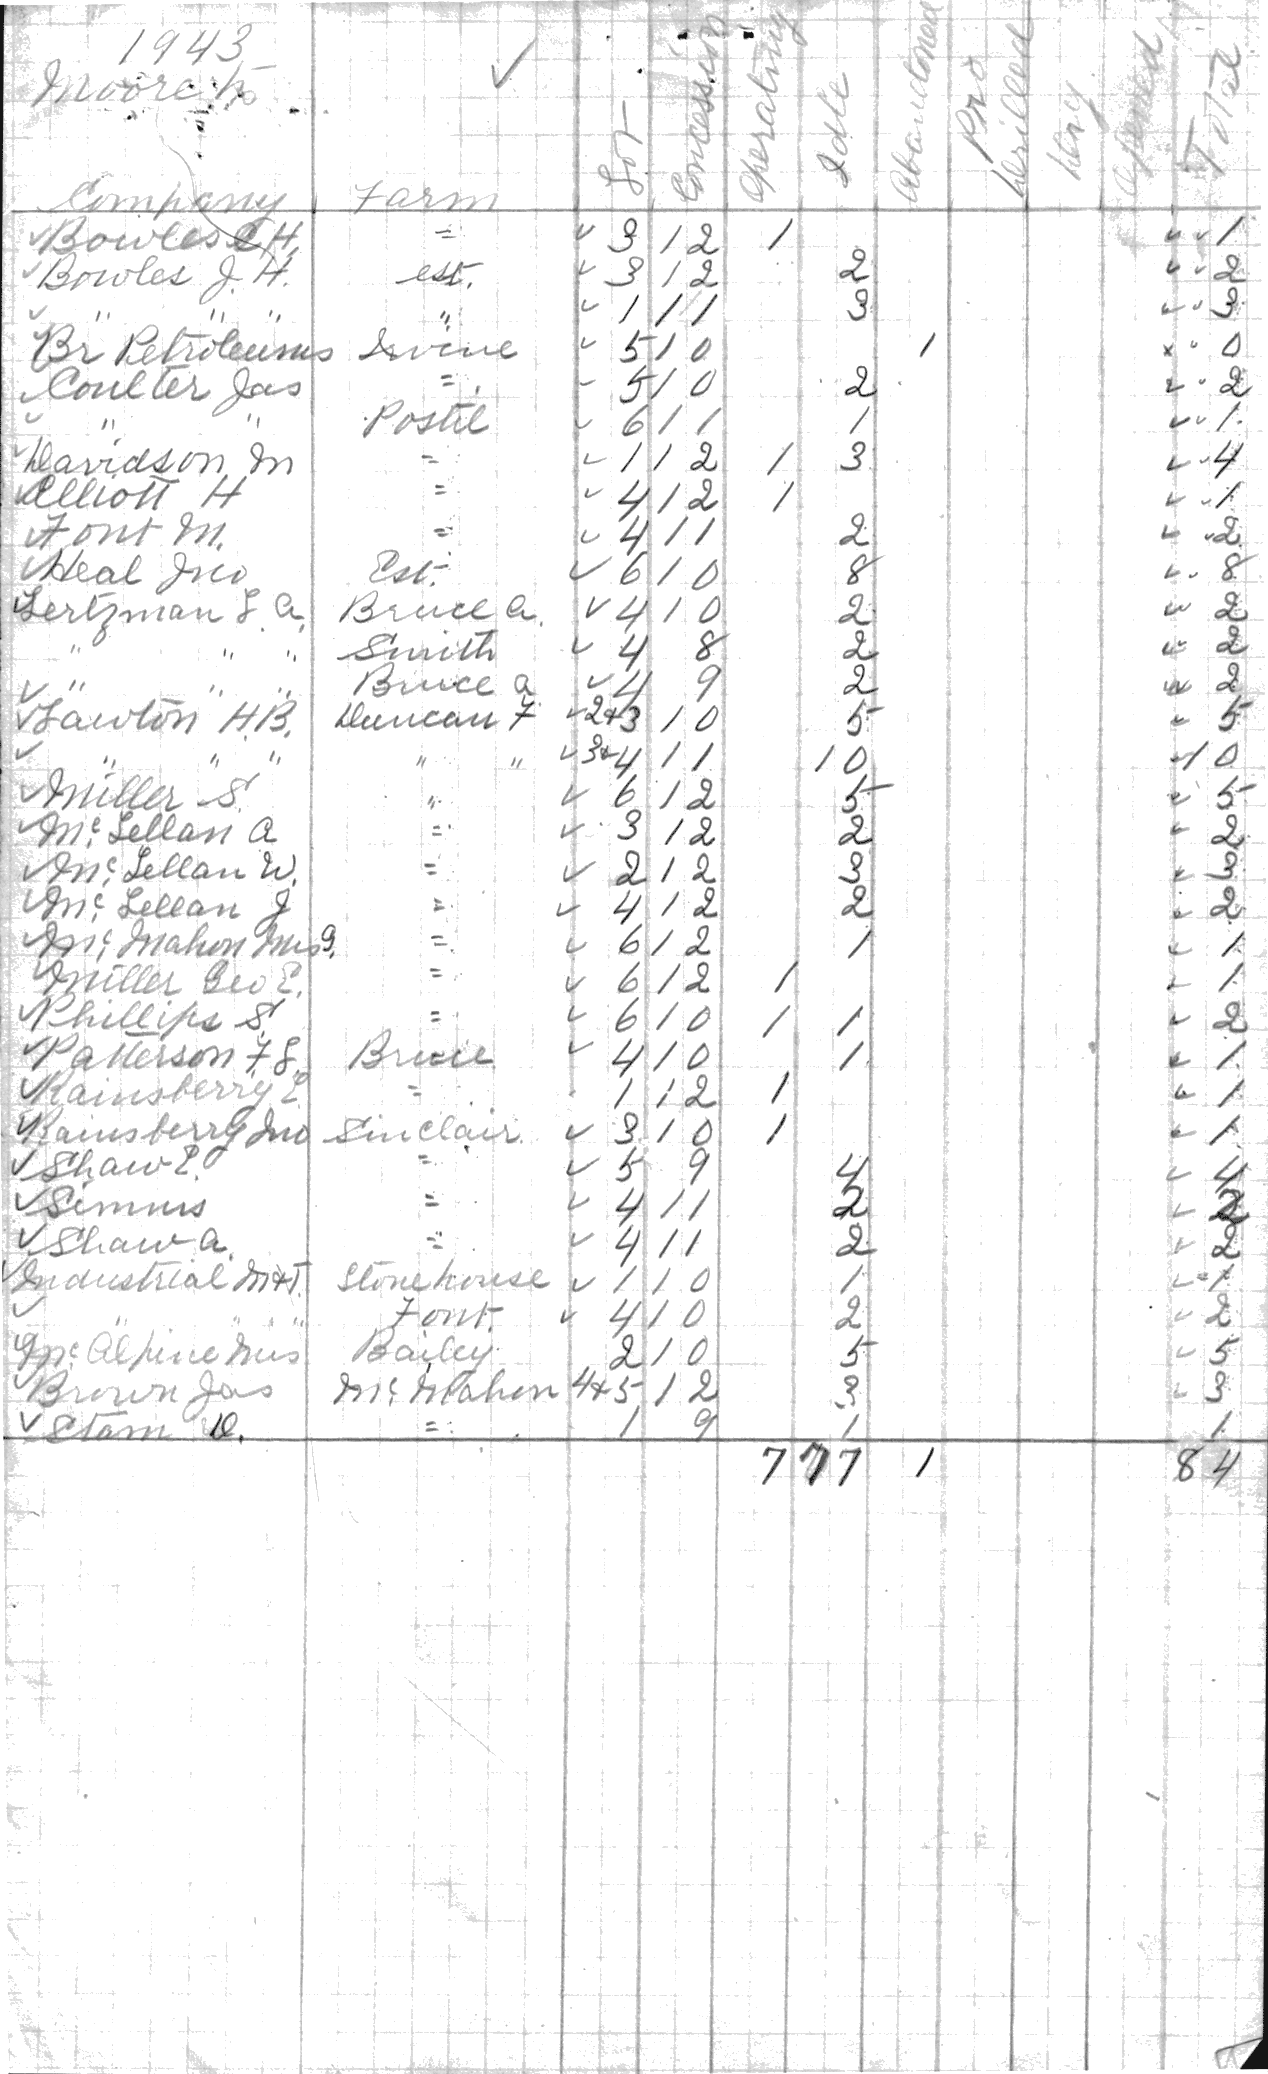 1943
Moore Tp
Company Farm Lot Concession Operating Idle Abandoned Pro Drilled Dry Opened Total
✓ Bowles C H. = ✓ 3 12 1 ✓ ✓ 1
✓ Bowles J. H. est. ✓ 3 12 2 ✓ ✓ 2
✓ " " " " ✓ 1 11 3 ✓ ✓ 3
✓ Br Petroleums Irvine ✓ 5 10 1 0
✓ Coulter Jas = ✓ 5 10 2 ✓ ✓ 2
✓ " " Postil ✓ 6 11 1 ✓ ✓ 1
✓ Davidson M = ✓ 1 12 1 3 ✓ ✓ 4
✓ Elliott H = ✓ 4 12 1 ✓ ✓ 1
✓ Font M. = ✓ 4 11 2 ✓ ✓ 2
✓ Heal Jno Est. ✓ 6 10 8 ✓ 8
✓ Lertzman L. A. Bruce A. ✓ 4 10 2 ✓ 2
" " " Smith ✓ 4 8 2 ✓ 2
✓ " " " Bruce A ✓ 4 9 2 ✓ 2
✓ Lawton H.B. Duncan F ✓ 2+3 10 5 ✓ 5
✓ " " " " " ✓ 3+4 11 10 ✓ 10
✓ Miller S. " ✓ 6 12 5 ✓ 5
✓ Mc Lellan A = ✓ 3 12 2 ✓ 2
✓ Mc Lellan W. = ✓ 2 12 3 ✓ 3
✓ Mc Lellan J = ✓ 4 12 2 ✓ 2
✓ Mc Mahon Mrs G. = ✓ 6 12 1 ✓ 1
✓ Miller Geo E. = ✓ 6 12 1 ✓ 1
✓ Phillips S. = ✓ 6 10 1 1 ✓ 2
✓ Patterson F L. Bruce ✓ 4 10 1 ✓ 1
✓ Rainsberry E = 1 12 1 ✓ 1
✓ Rainsberry Jno Sinclair ✓ 3 10 1 ✓ 1
✓ Shaw E. = ✓ 5 9 4 ✓ 4
✓ Simms = ✓ 4 11 2 ✓ 2
✓ Shaw A. = ✓ 4 11 2 ✓ 2
✓ Industrial M+T. Stonehouse ✓ 1 10 1 ✓ 1
✓ " " " Font. ✓ 4 10 2 ✓ 2
Mc Alpine Mrs Bailey 2 10 5 ✓ 5
Brown Jas Mc Mahon 4+5 12 3 ✓ 3
✓ Stam D. = 1 9 1 1
7 77 1 84